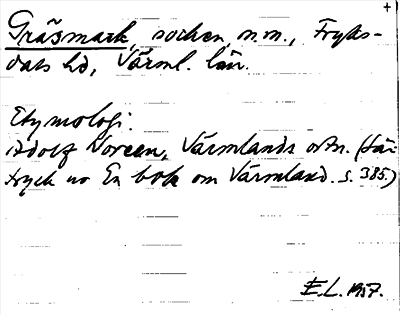 +
Gräsmark, socken, m.m., Fryks-
dals hd, Värml. län.
Etymologi:
Adolf Noreen, Värmlands ortn. (Sär-
tryck ur En bok om Värmland. s. 385.)
E.L. 1957.